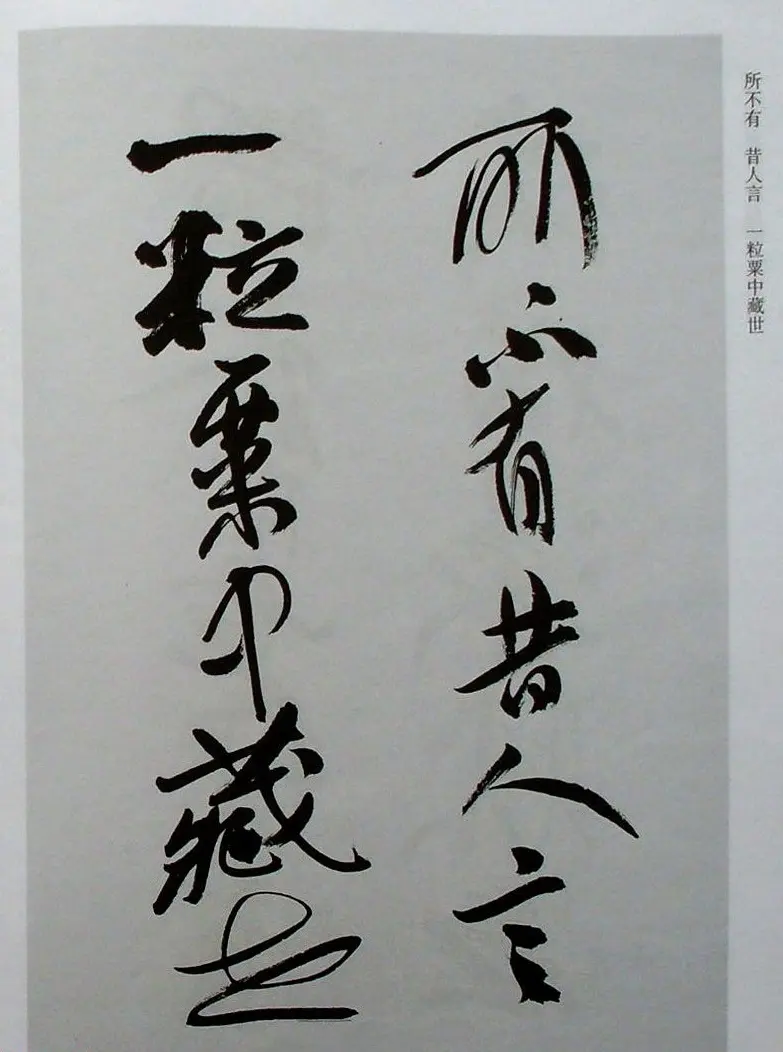 所不有 昔人言 一粒粟中藏世
所不有昔人言
一粒粟中藏世